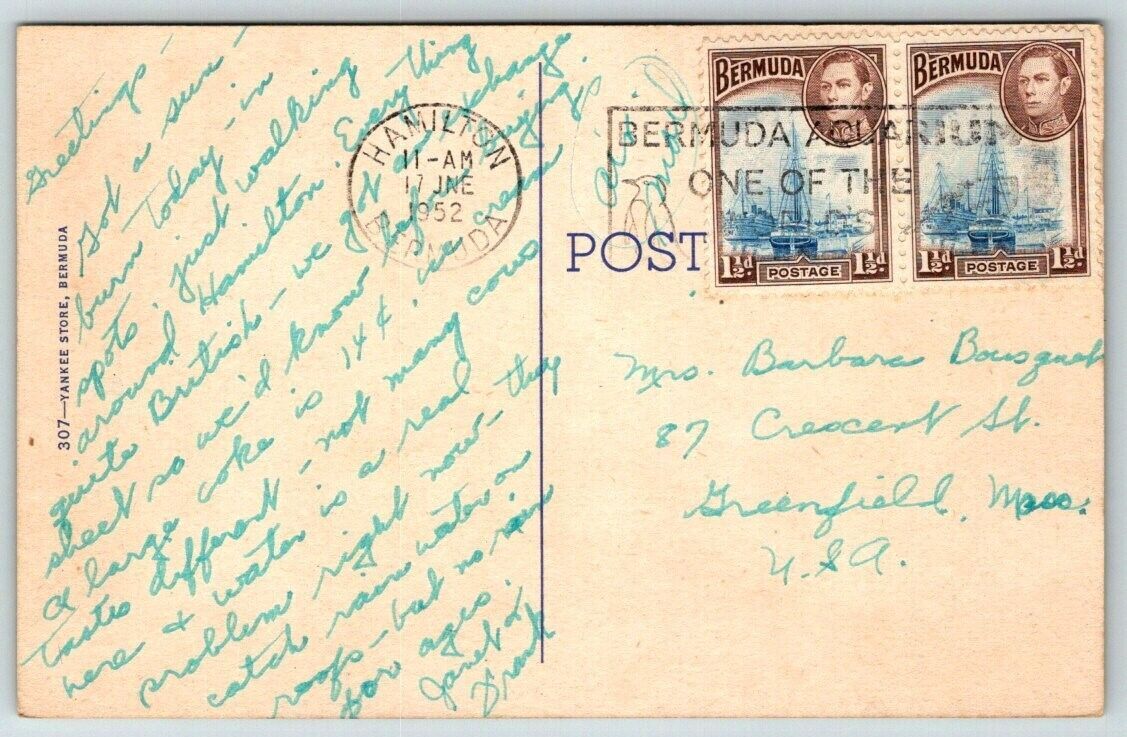 Greetings -
Got a sun -
burn today - in
spots, just walking
around Hamilton. Every thing
quite British - we got an exchange
sheet so we'd know bef. buying.
A large coke is 14¢, ice cream
tastes different - not many cows
here & water is a real
problem right now - they
catch rain water on
roofs - but no rain
for ages.
Janet &
Frank
307—YANKEE STORE, BERMUDA
HAMILTON
11-AM
17 JNE
1952
BERMUDA
air mail
BERMUDA AQUARIUM
ONE OF THE
POST
BERMUDA
POSTAGE
1½d 1½d
BERMUDA
POSTAGE
1½d 1½d
Mrs. Barbara Bousquet
87 Crescent St.
Greenfield, Mass.
U.S.A.